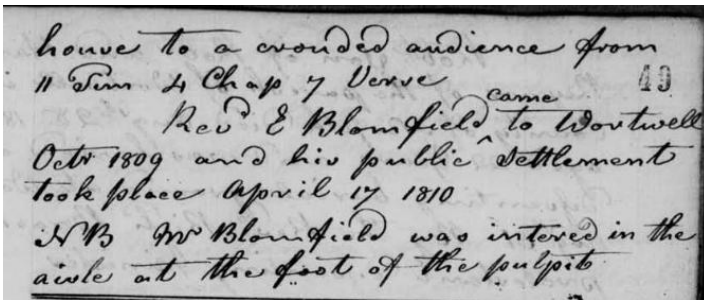 house to a crouded audience from
11 Tim 4 Chap 7 Verse
49
Revd E Blomfield came to Wortwell
Octr 1809 and his public ^ Settlement
took place April 17 1810
NB Mr Blomfield was intered in the
aisle at the foot of the pulpit